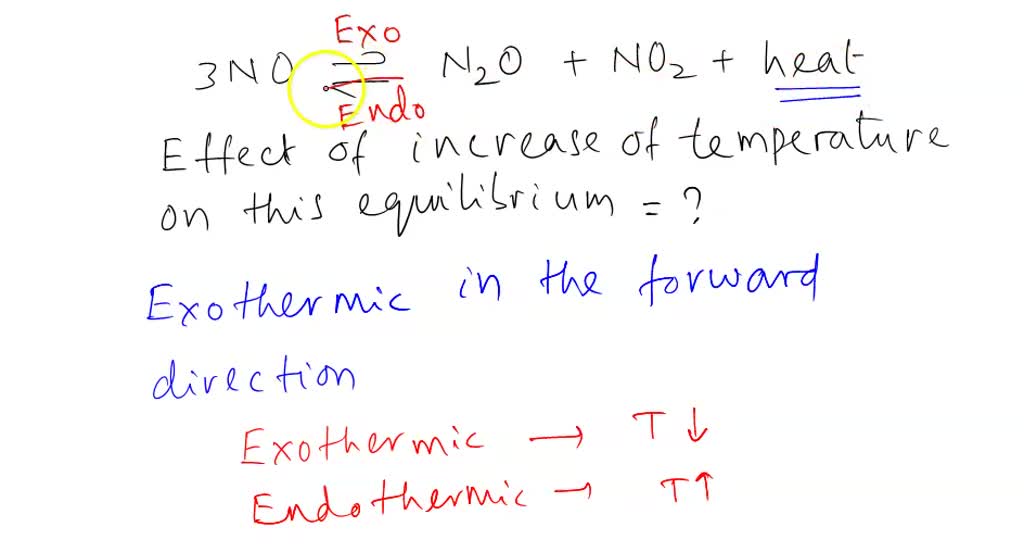 Exo
3NO ⇌ N₂O + NO₂ + heat
Endo
Effect of increase of temperature
on this equilibrium = ?
Exothermic in the forward
direction
Exothermic → T ↓
Endothermic → T↑